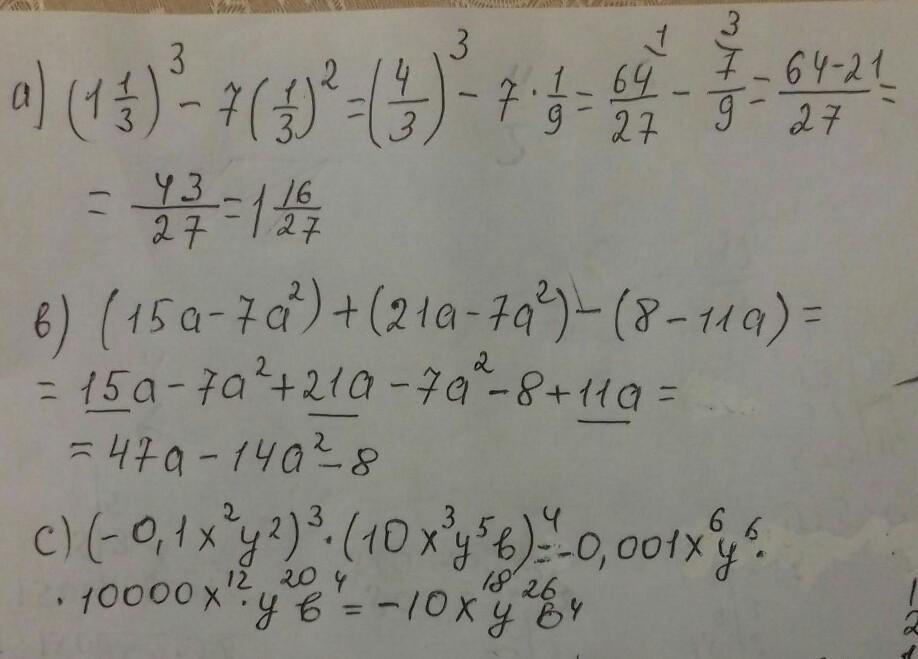 а) (1 1/3)³ - 7(1/3)² = (4/3)³ - 7 · 1/9 = 64/27 ¹⁾ - 7/9 ³⁾ = (64-21)/27 =
= 43/27 = 1 16/27
в) (15a - 7a²) + (21a - 7a²) - (8 - 11a) =
= 15a - 7a² + 21a - 7a² - 8 + 11a =
= 47a - 14a² - 8
с) (-0,1x²y²)³ · (10x³y⁵в)⁴ = -0,001x⁶y⁶ ·
· 10000x¹² · y²⁰в⁴ = -10x¹⁸y²⁶в⁴
1
2